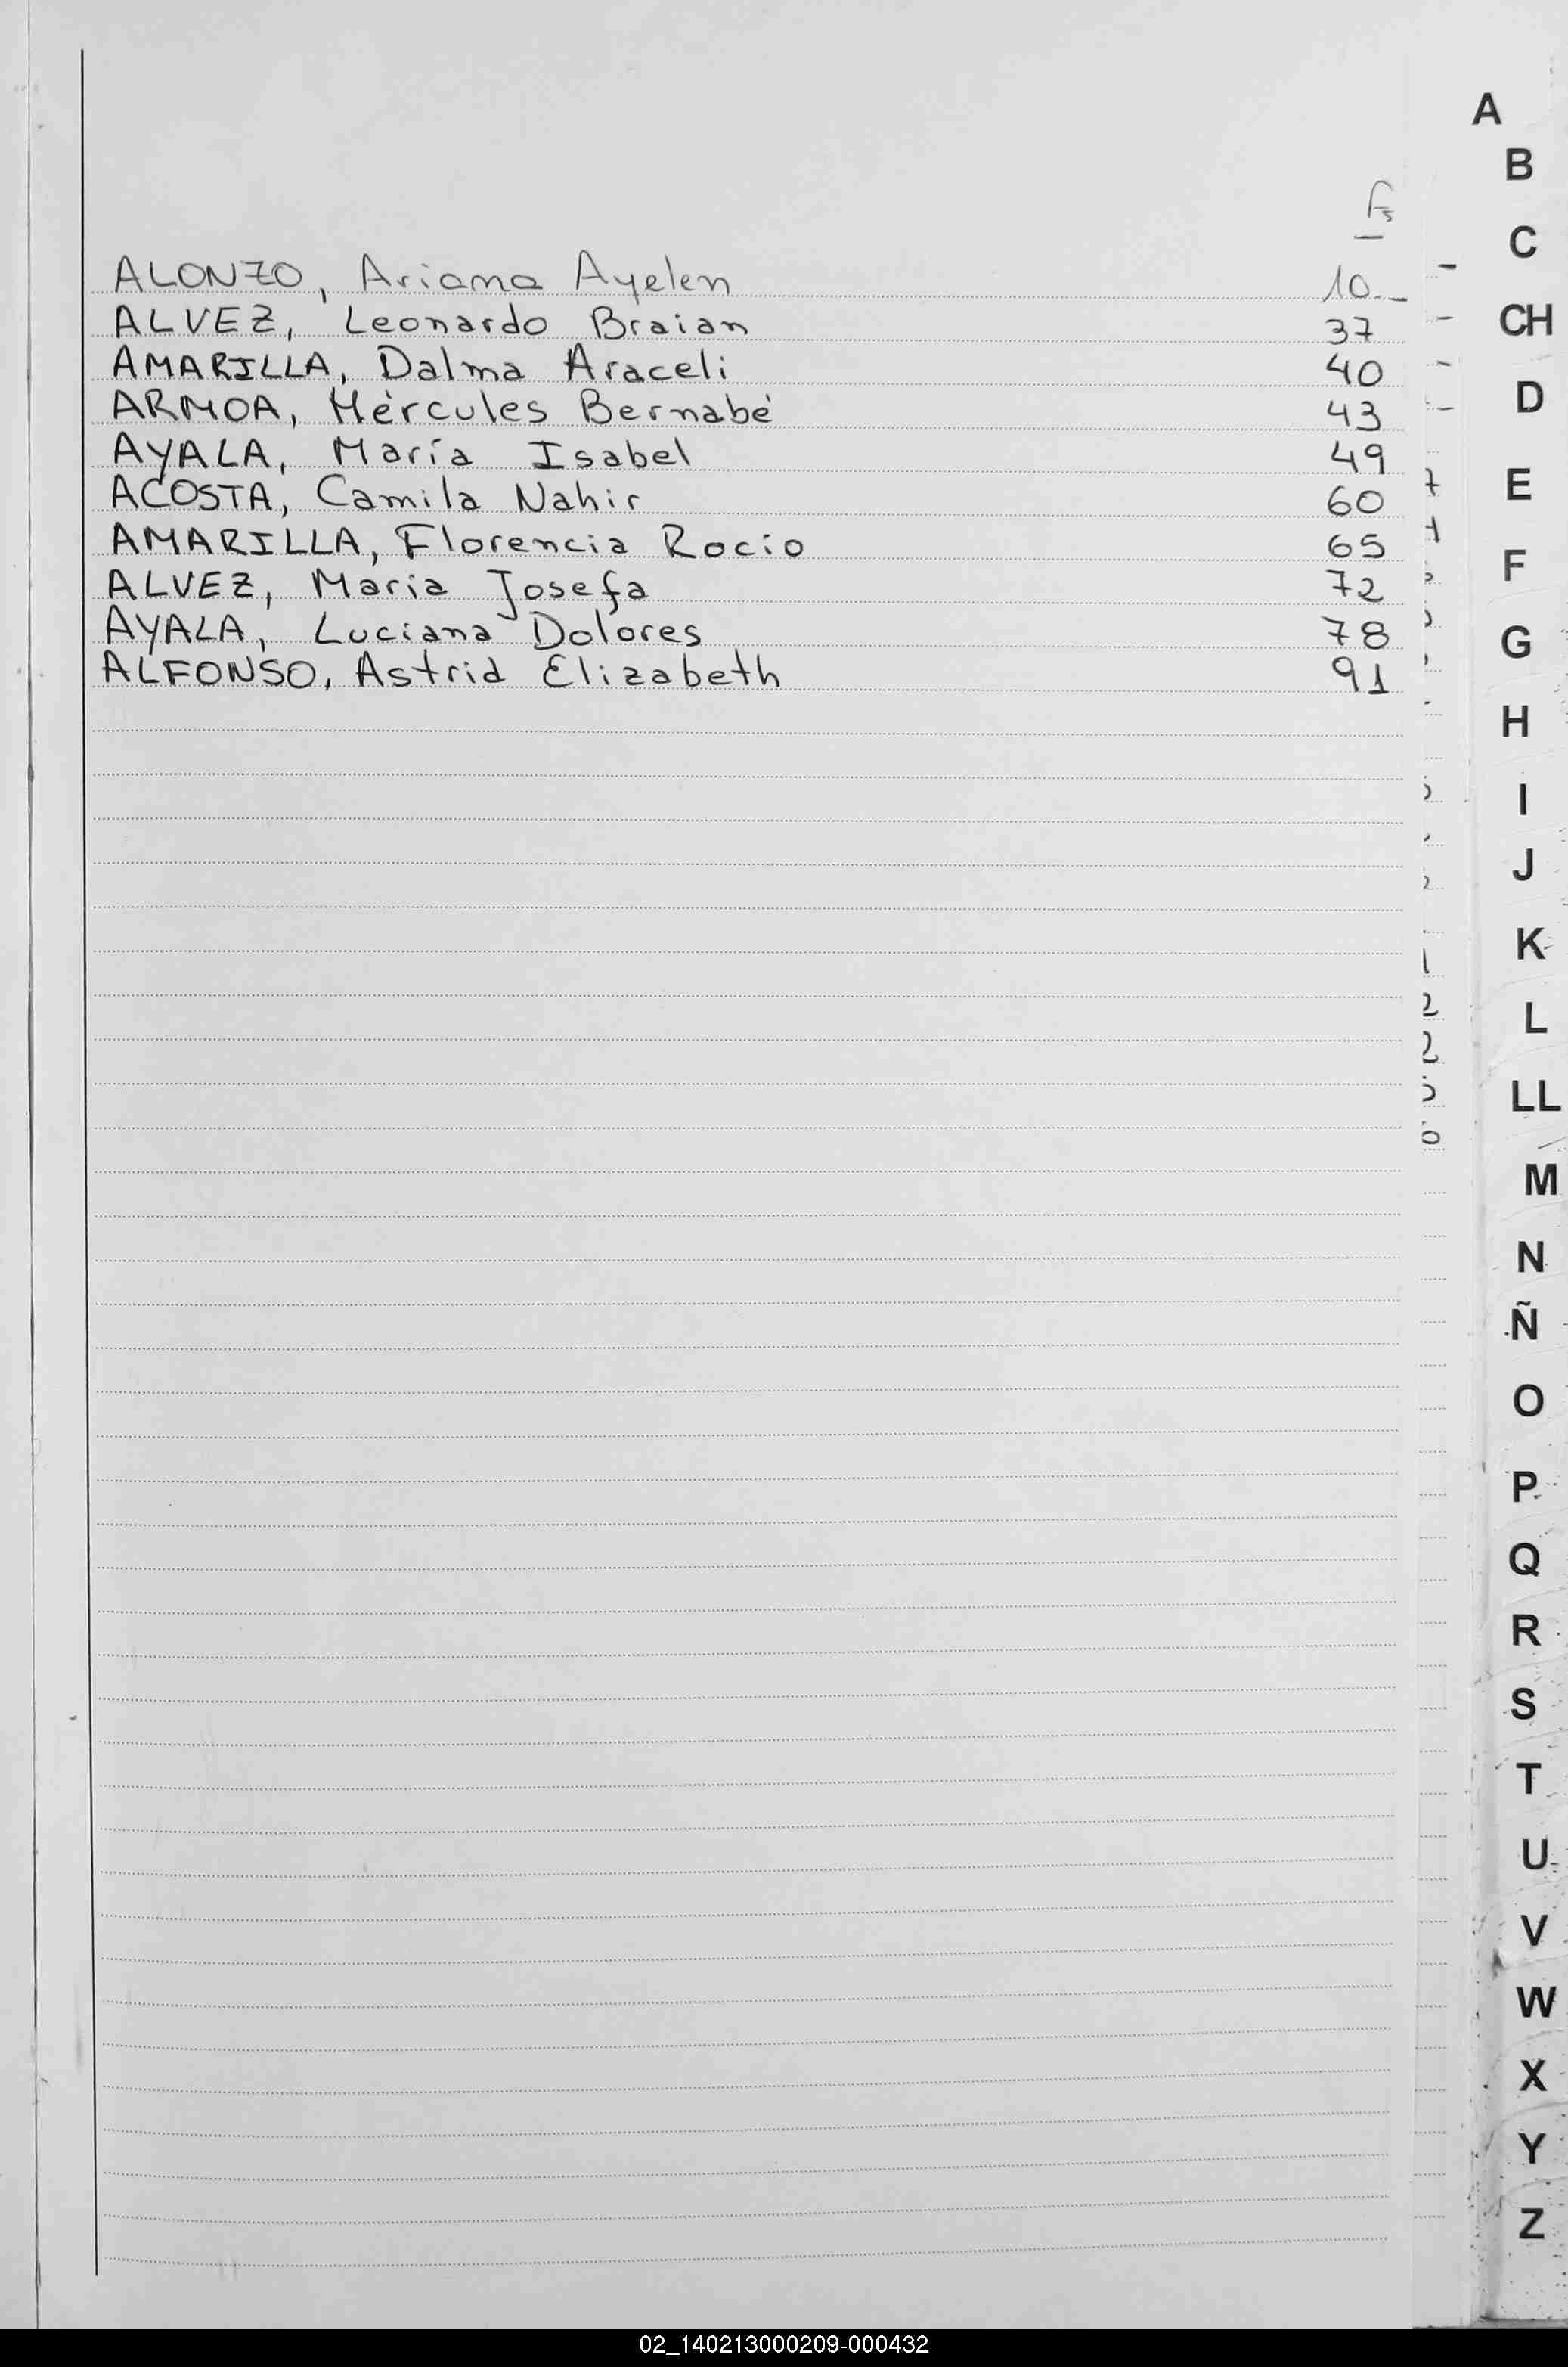 Fs
ALONZO, Ariana Ayelen 10
ALVEZ, Leonardo Braian 37
AMARILLA, Dalma Araceli 40
ARMOA, Hércules Bernabé 43
AYALA, María Isabel 49
ACOSTA, Camila Nahir 60
AMARILLA, Florencia Rocio 65
ALVEZ, Maria Josefa 72
AYALA, Luciana Dolores 78
ALFONSO, Astrid Elizabeth 91
A
B
C
CH
D
E
F
G
H
I
J
K
L
LL
M
N
Ñ
O
P
Q
R
S
T
U
V
W
X
Y
Z
02_140213000209-000432